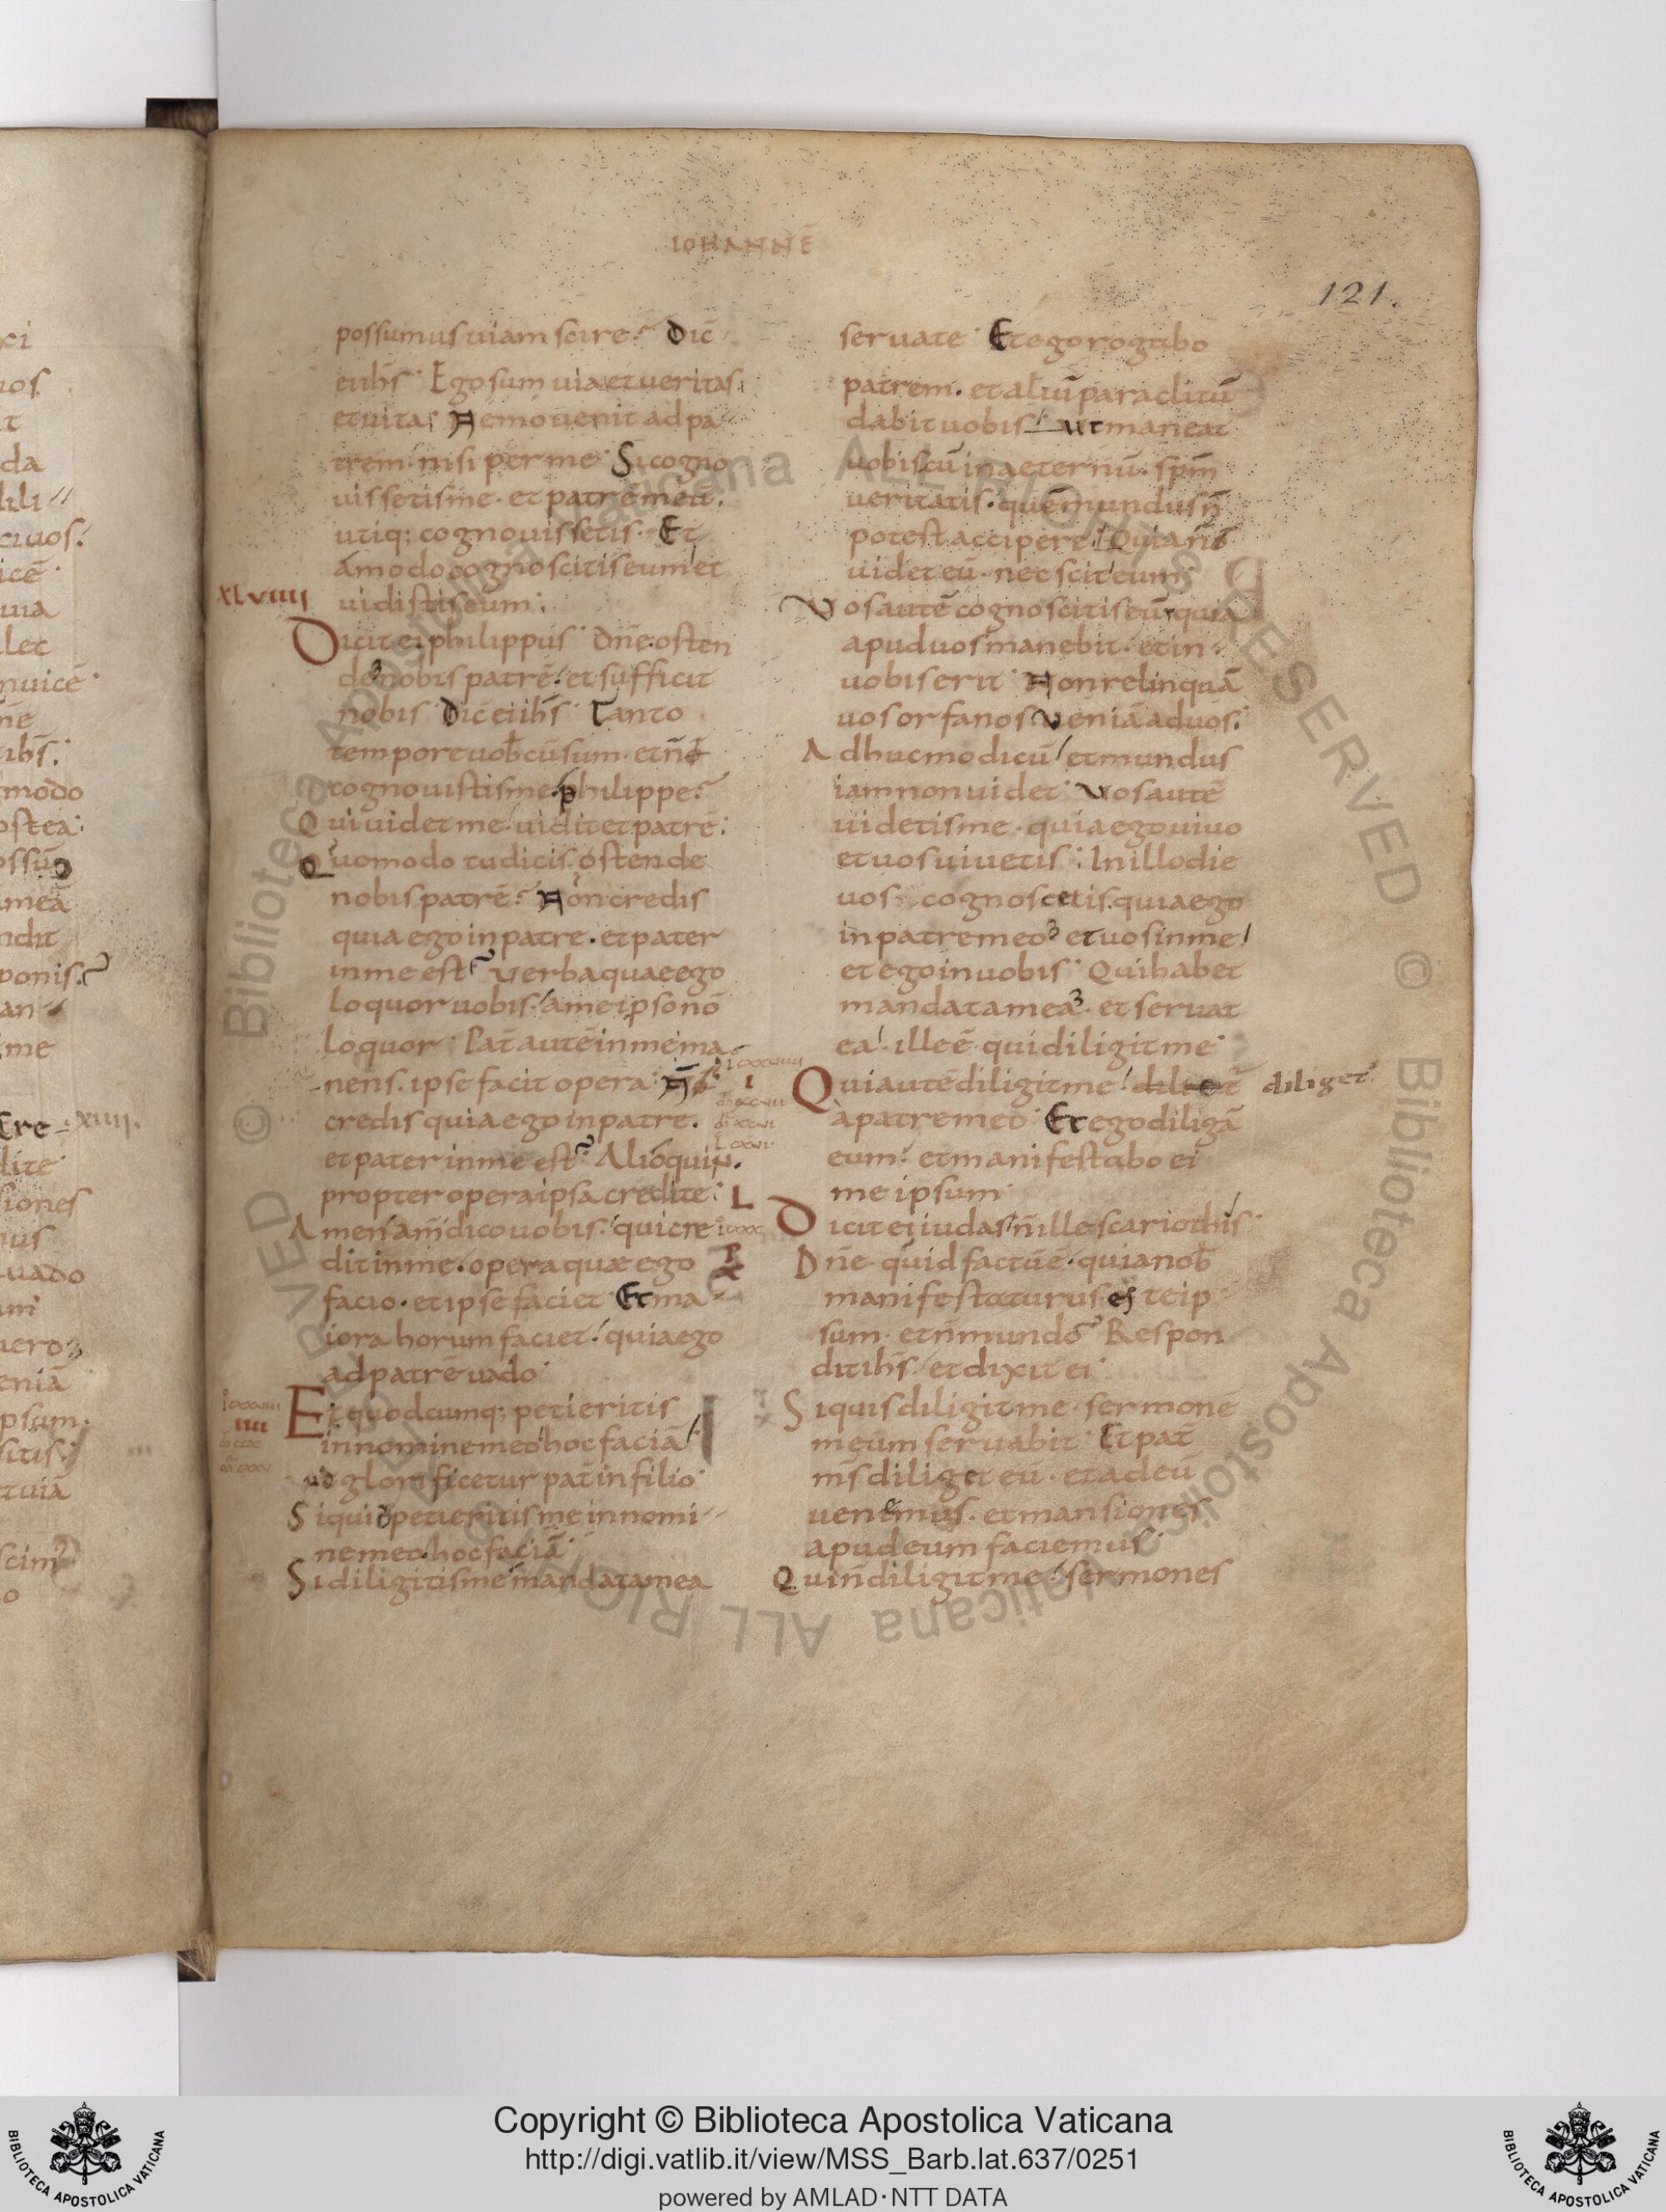 IOHANNĒ
121.
possumus uiam scire? Dic̄
ei ih̄s. Ego sum uia et ueritas
et uita; Nemo uenit ad pa
trem. nisi per me. Si cogno
uissetis me. et patrē meū.
utiq; cognouissetis. Et
amodo cognoscitis eum et
XLVIIII
uidistis eum;
Dicit ei philippus. Dn̄e. osten
de nobis patrē. et sufficit
nobis. Dic̄ ei ih̄s. Tanto
tempore uob̄cū sum. et n̄
cognouistis me. philippe?
Qui uidet me. uidit et patrē:
Quomodo tu dicis. ostende
nobis patrē? Non credis
quia ego in patre. et pater
in me est? Verba quae ego
loquor uobis. a me ipso nō
loquor. Pat̄ autē in me ma
nens. ipse facit opera. N̄
credis quia ego in patre.
et pater in me est? Alioquin.
propter opera ipsa credite:
L
Amen am̄ dico uobis. qui cre
dit in me. opera quae ego
facio. et ipse faciet. Et ma
iora horum faciet. quia ego
ad patrē uado.
Et quodcunq; petieritis
IIII
in nomine meo hoc faciā
ut glorificetur pat̄ in filio.
Si quid petieritis me in nomi
ne meo. hoc faciā.
Si diligitis me mandata mea
seruate. Et ego rogabo
patrem. et aliū paraclitū
dabit uobis. ut maneat
uobiscū in aeternū. sp̄m
ueritatis. quē mundus n̄
potest accipere. Quia n̄
uidet eū. nec scit eum.
Vos autē cognoscitis eū. quia
apud uos manebit. et in
uobis erit. Non relinquā
uos orfanos ueniā ad uos.
Adhuc modicū et mundus
iam non uidet. Vos autē
uidetis me. quia ego uiuo
et uos uiuetis: In illo die
uos cognoscetis. quia ego
in patre meo et uos in me
et ego in uobis. Qui habet
mandata mea. et seruat
ea. ille ē. qui diligit me.
Qui autē diligit me. diliget.
a patre meo. Et ego diligā
eum. et manifestabo ei
me ipsum.
Dicit ei iudas n̄ ille scariothis.
Dn̄e. quid factū ē. quia nob̄
manifestaturus es te ip
sum. et n̄ mundo? Respon
dit ih̄s et dixit ei.
Si quis diligit me. sermonē
meum seruabit. Et pat̄
m̄s diliget eū. et ad eū
ueniemus. et mansiones
apud eum faciemus.
Qui n̄ diligit me. sermones
Copyright © Biblioteca Apostolica Vaticana
http://digi.vatlib.it/view/MSS_Barb.lat.637/0251
powered by AMLAD·NTT DATA